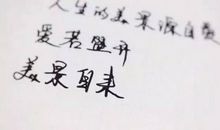 人生的美景源自爱
爱若盛开
美景自来